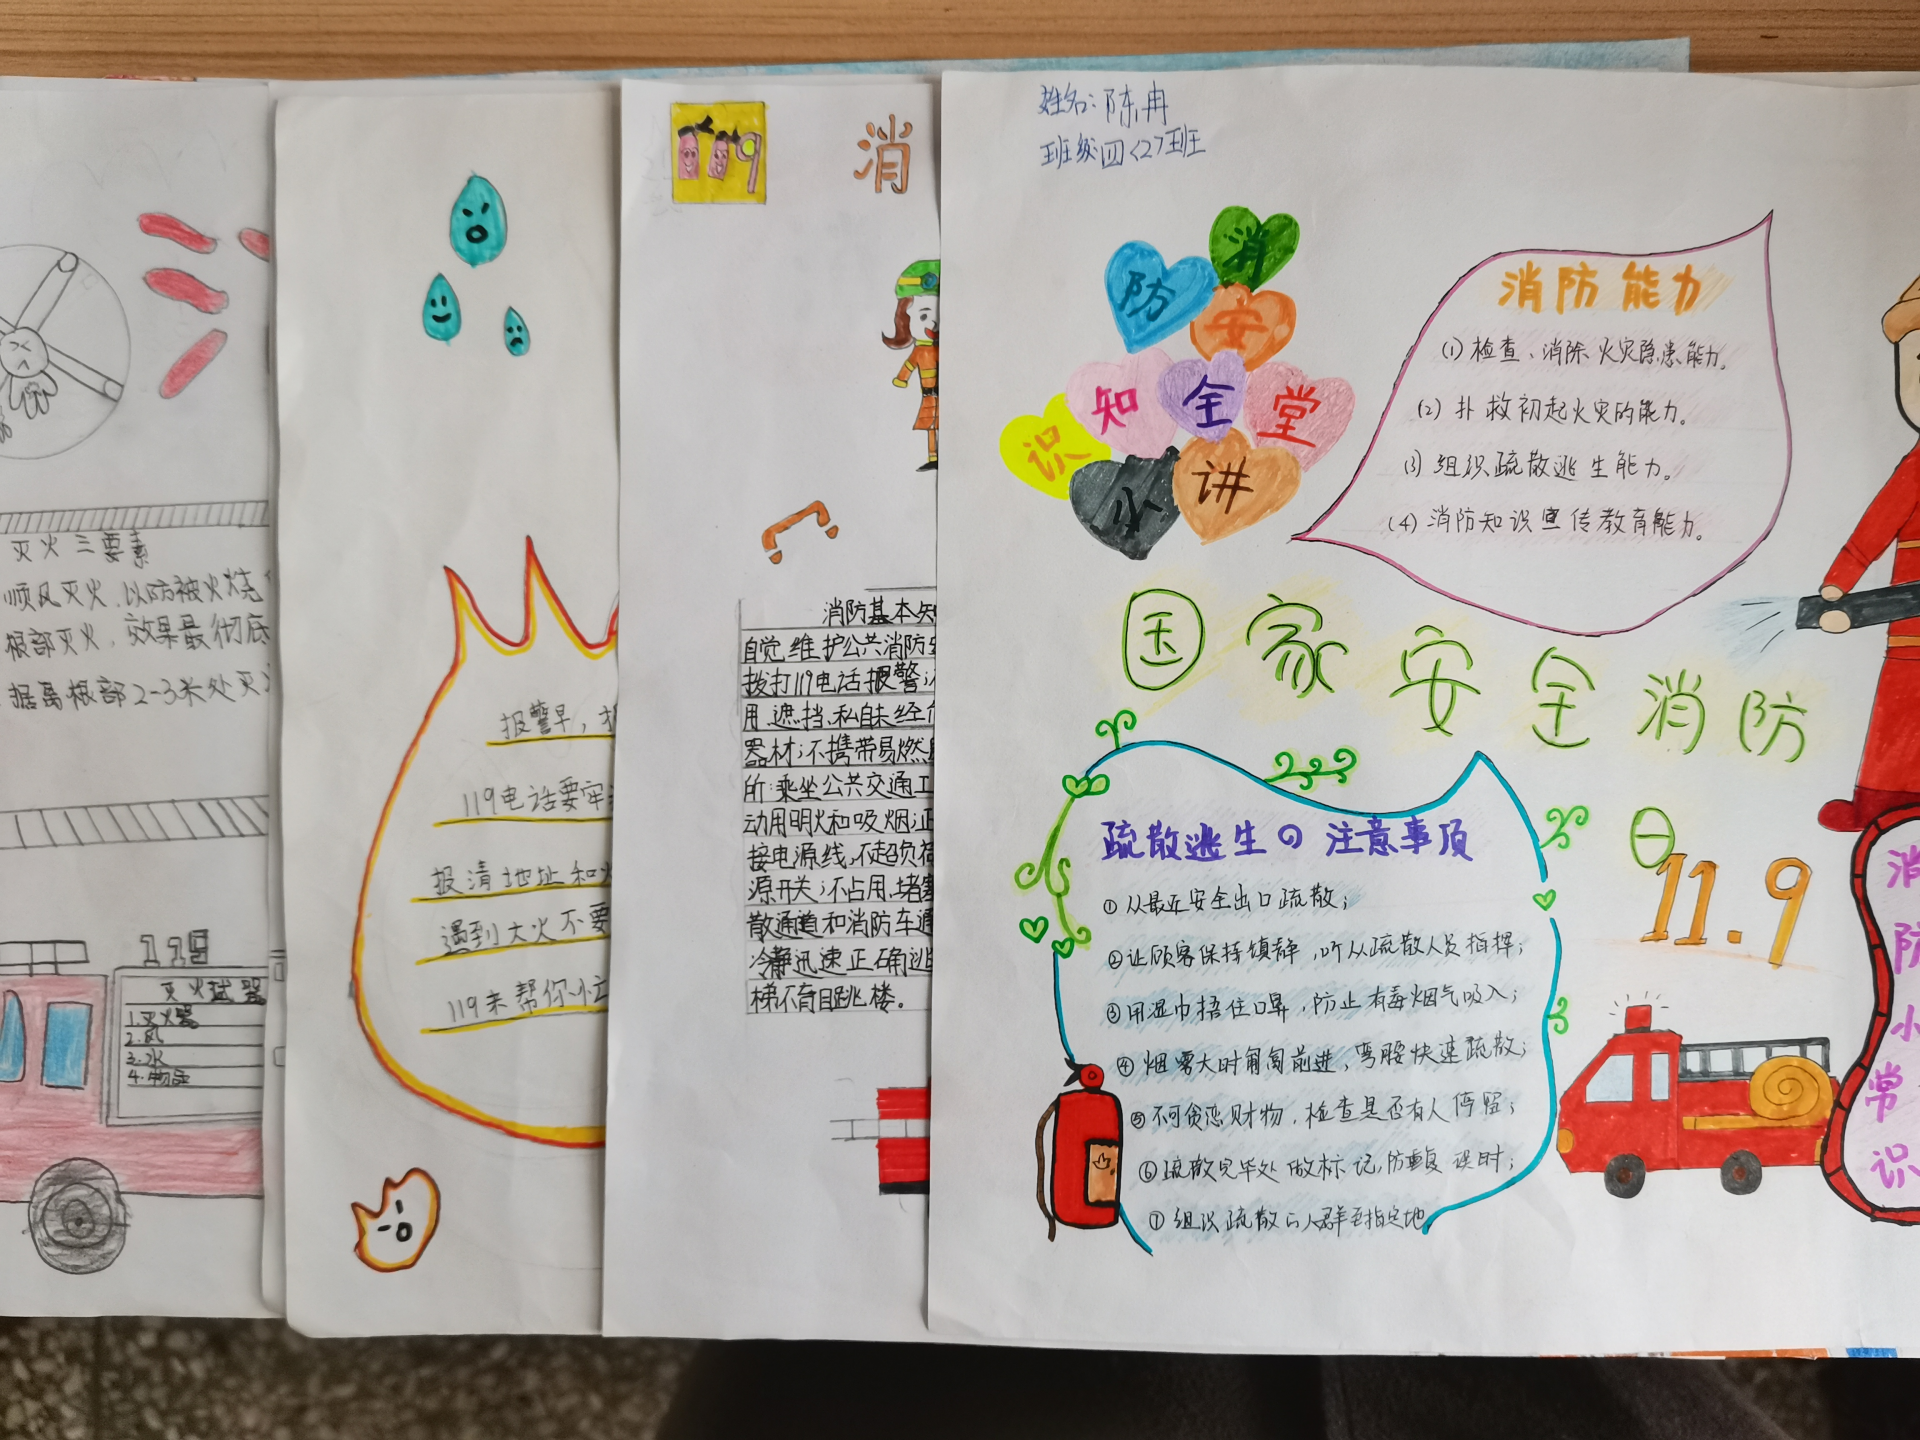 灭火三要素
顺风灭火,以防被火烧
根部灭火,效果最彻底
据离根部2-3米处灭
119
灭火试器
1.灭火器
2.风
3.水
4.物品
报警早,
119电话要牢
报清地址和火
遇到大火不要
119来帮你忙
119
消
消防基本知
自觉维护公共消防安
拨打119电话报警;不
用、遮挡、私自未经
器材;不携带易燃
所;乘坐公共交通工
动用明火和吸烟;正
接电源线,不超负荷
源开关;不占用、堵塞
散通道和消防车通
冷静迅速正确逃
梯不盲目跳楼。
姓名:陈冉
班级四<2>班
消
防
安
知
全
堂
识
小
讲
消防能力
(1)检查、消除火灾隐患能力。
(2)扑救初起火灾的能力。
(3)组织疏散逃生能力。
(4)消防知识宣传教育能力。
国家安全消防
日
11.9
疏散逃生の注意事项
①从最近安全出口疏散;
②让顾客保持镇静,听从疏散人员指挥;
③用湿巾捂住口鼻,防止有毒烟气吸入;
④烟雾大时匍匐前进,弯腰快速疏散;
⑤不可贪恋财物,检查是否有人停留;
⑥疏散完毕处做标记,防重复误时;
⑦组织疏散的人群至指定地。
消
防
小
常
识